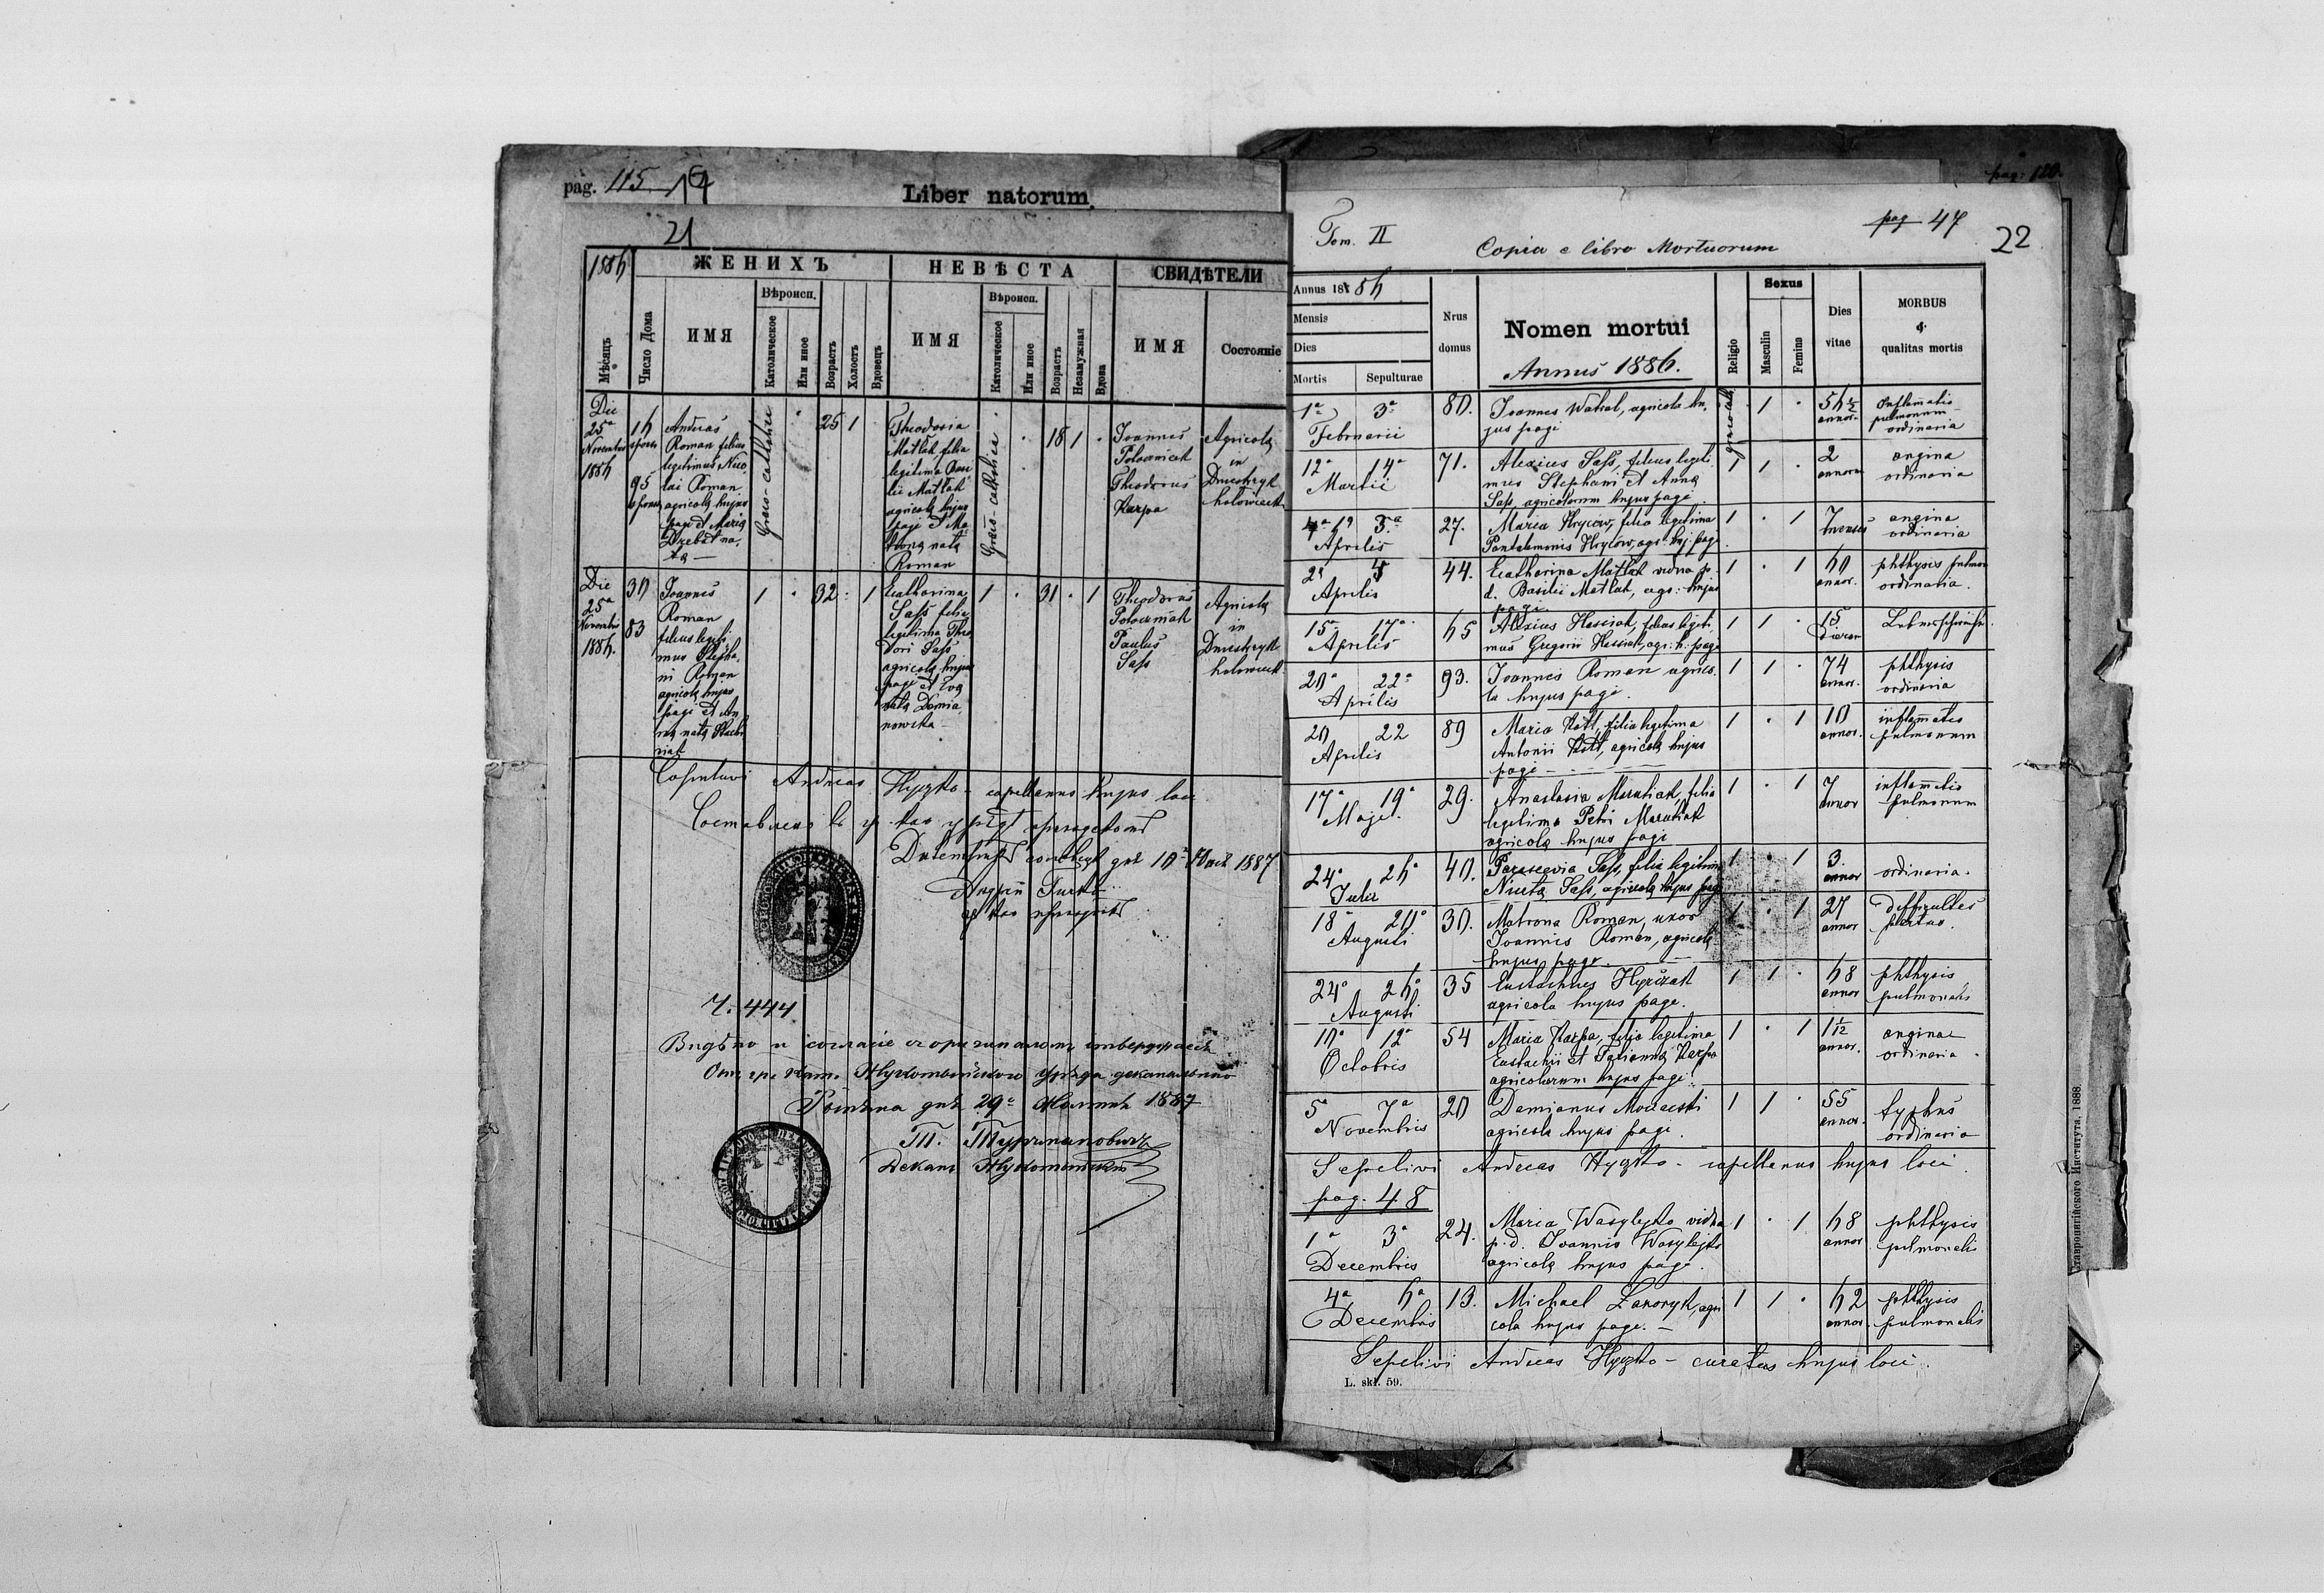 pag. 115
Liber natorum.
21
1886
ЖЕНИХЪ
НЕВѢСТА
СВИДѢТЕЛИ
Мѣсяцъ
Число Дома
ИМЯ
Вѣроисп.
Католическое
Или иное
Возрастъ
Холостъ
Вдовецъ
ИМЯ
Вѣроисп.
Католическое
Или иное
Возрастъ
Незамужная
Вдова
ИМЯ
Состояніе
Die
25ª
Novembris
1886
16
sponsi
95
sponsae
Andreas
Roman filius
legitimus Nico
lai Roman
agricolę hujus
pagi et Marię
na,
tę —
Graeco-catholica
25
1
Theodosia
Matłak filia
legitima Basi
lii Matłak
agricolę hujus
pagi et Ma
tronę natę
Roman
Graeco-catholica
18
1
Joannes
Theodorus
Karpa
Agricolę
in
Dniestrzyk
hołowiecki
Die
25ª
Novembris
1886.
30
83
Joannes
Roman
filius legiti
mus Stepha
ni Roman
agricolę hujus
pagi et An
nę natę
1
32
1
Catharina
Sass filia
legitima Theo
dori Sass
agricolę hujus
pagi et Evę
natę Damia
nowska
1
31
1
Theodorus
Paulus
Sass
Agricolę
in
Dniestrzyk
hołowiecki
Copulavi Andreas Hyczko - capellanus hujus loci
1887
Ч. 444
Видѣно и согласіе съ оригиналомъ ствердждаесь
Отъ гр. кат. Жукотынского Уряда деканального
дня 29о 1887
Деканъ Жукотынскій
Tom. II
Copia e libro Mortuorum
pag 47
22
pag: 120.
Annus 1886
Mensis
Dies
Mortis
Sepulturae
Nrus
domus
Nomen mortui
Annus 1886.
Religio
Sexus
Masculin
Femina
Dies
vitae
MORBUS
&
qualitas mortis
1ª 3ª
Februarii
80.
Joannes Watral, agricola hu,
jus pagi
graeco-cath.
1
annor.
Inflammatio
pulmonum
ordinaria
12ª 14ª
Martii
71.
Alexius Sass, filius legiti
mus Stephani et Annę
Sass, agricolarum hujus pagi
1 1
2
annorum
angina
ordinaria
Aprilis
27.
Maria Hryców, filia legitima
Pantalemonis Hryców, agr. huj. pagi
1 1
7
menses
angina
ordinaria
2ª
Aprilis
44.
Catharina Matłak vidua p.
d. Basilii Matłak, agr: hujus
pagi
1 1
60
annor.
phthysis pulmon
ordinaria.
15ª 17ª
Aprilis
65
Alexius Hasiak, filius legiti
mus Gregorii Hasiak, agr: h: pagi
1 1
15
dierum
20ª 22ª
Aprilis
93.
Joannes Roman agrico
la hujus pagi.
1 1
74
annor.
phthysis
ordinaria
20 22
Aprilis
89
Maria Kott, filia legitima
Antonii Kott, agricolę hujus
pagi
1 1
10
annor.
inflammatio
pulmonum
17ª 19ª
Maji.
29.
Anastasia Marutiak, filia
legitima Petri Marutiak
agricolę hujus pagi
1 1
7
annor
inflammatio
pulmonum
24ª 26ª
Julii
40.
Parascevia Sass, filia legitima
Nicetę Sass, agricolę hujus pagi
1 1
3.
annor
ordinaria.
18ª 20ª
Augusti
30.
Matrona Roman, uxor
Joannis Roman, agricolę
hujus pagi.
1 1
27
annor
difficultas
partus.
24ª 26ª
Augusti
35
Eustachius Hyrczak
agricola hujus pagi.
1 1
68
annor
phthysis
pulmonalis
10ª 12ª
Octobris
54
Maria Karpa, filia legitima
Eustachii et Tatiannę Karpa
agricolarum hujus pagi.
1 1
1 1/12
annor.
angina
ordinaria.
5ª 7ª
Novembris
20
Damianus
agricola hujus pagi.
1 1
55
annor.
typhus
ordinaria
Sepelivi Andreas Hyczko - capellanus hujus loci.
pag. 48
1ª 3ª
Decembris
24.
Maria Wasylejko vidua
p. d. Joannis Wasylejko
agricolę hujus pagi.
1 1
68
annor
phthysis
pulmonalis
4ª 6ª
Decembris
13.
Michael Zakoryk, agri
cola hujus pagi. —
1 1
62
annor.
phthysis
pulmonalis
Sepelivi Andreas Hyczko - curatus hujus loci.
L. skł. 59.
Ставропигійского Института. 1888.